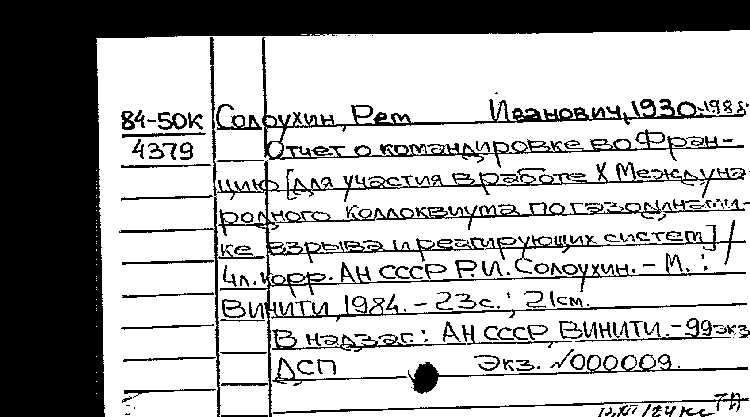 84-50К Солоухин, Рем Иванович, 1930-1988
4379 Отчет о командировке во Фран-
цию [для участия в работе X Междуна
родного коллоквиума по газодинами-
ке взрыва и реагирующих систем] /
Чл.корр. АН СССР Р.И. Солоухин. - М. :
ВИНИТИ, 1984. - 23с. ; 21см.
В надзаг.: АН СССР, ВИНИТИ. - 99экз
ДСП Экз. №000009.